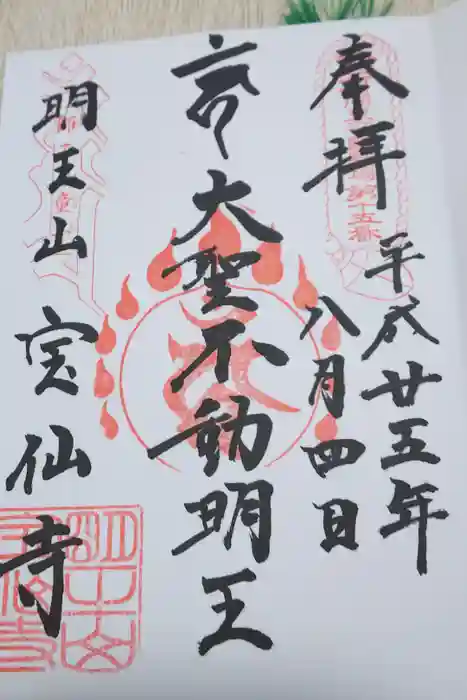 奉拝
第十五番
平成廿五年
八月四日
大聖不動明王
明王山
宝仙寺